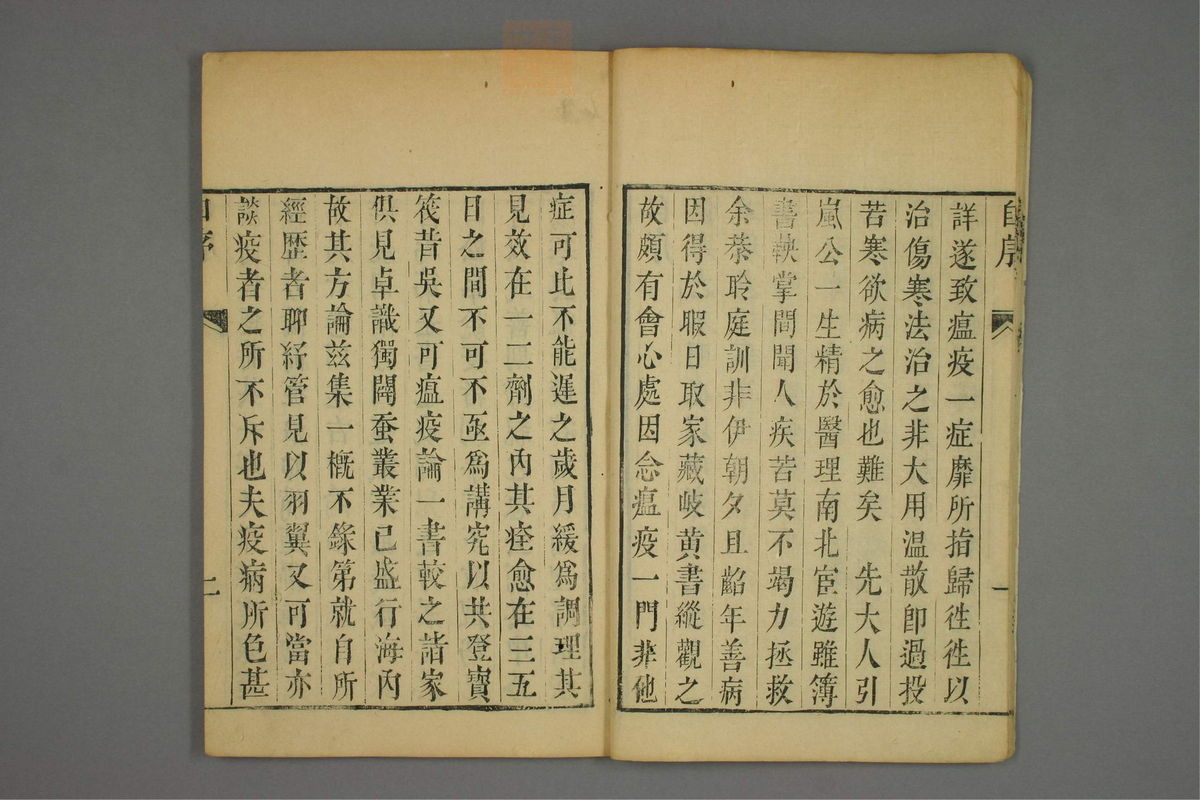 自序
一
詳遂致瘟疫一症靡所指歸徃徃以
治傷寒法治之非大用温散卽過投
苦寒欲病之愈也難矣　先大人引
嵐公一生精於醫理南北宦遊雖簿
書鞅掌間聞人疾苦莫不竭力拯救
余恭聆庭訓非伊朝夕且齠年善病
因得於暇日取家藏岐黄書縱觀之
故頗有會心處因念瘟疫一門非他
症可比不能遲之歲月緩爲調理其
見效在一二劑之内其痊愈在三五
日之間不可不亟爲講究以共登寶
筏昔吳又可瘟疫論一書較之諸家
俱見卓識獨闢蚕叢業已盛行海内
故其方論兹集一槪不錄第就自所
經歷者聊紓管見以羽翼又可當亦
談疫者之所不斥也夫疫病所色甚